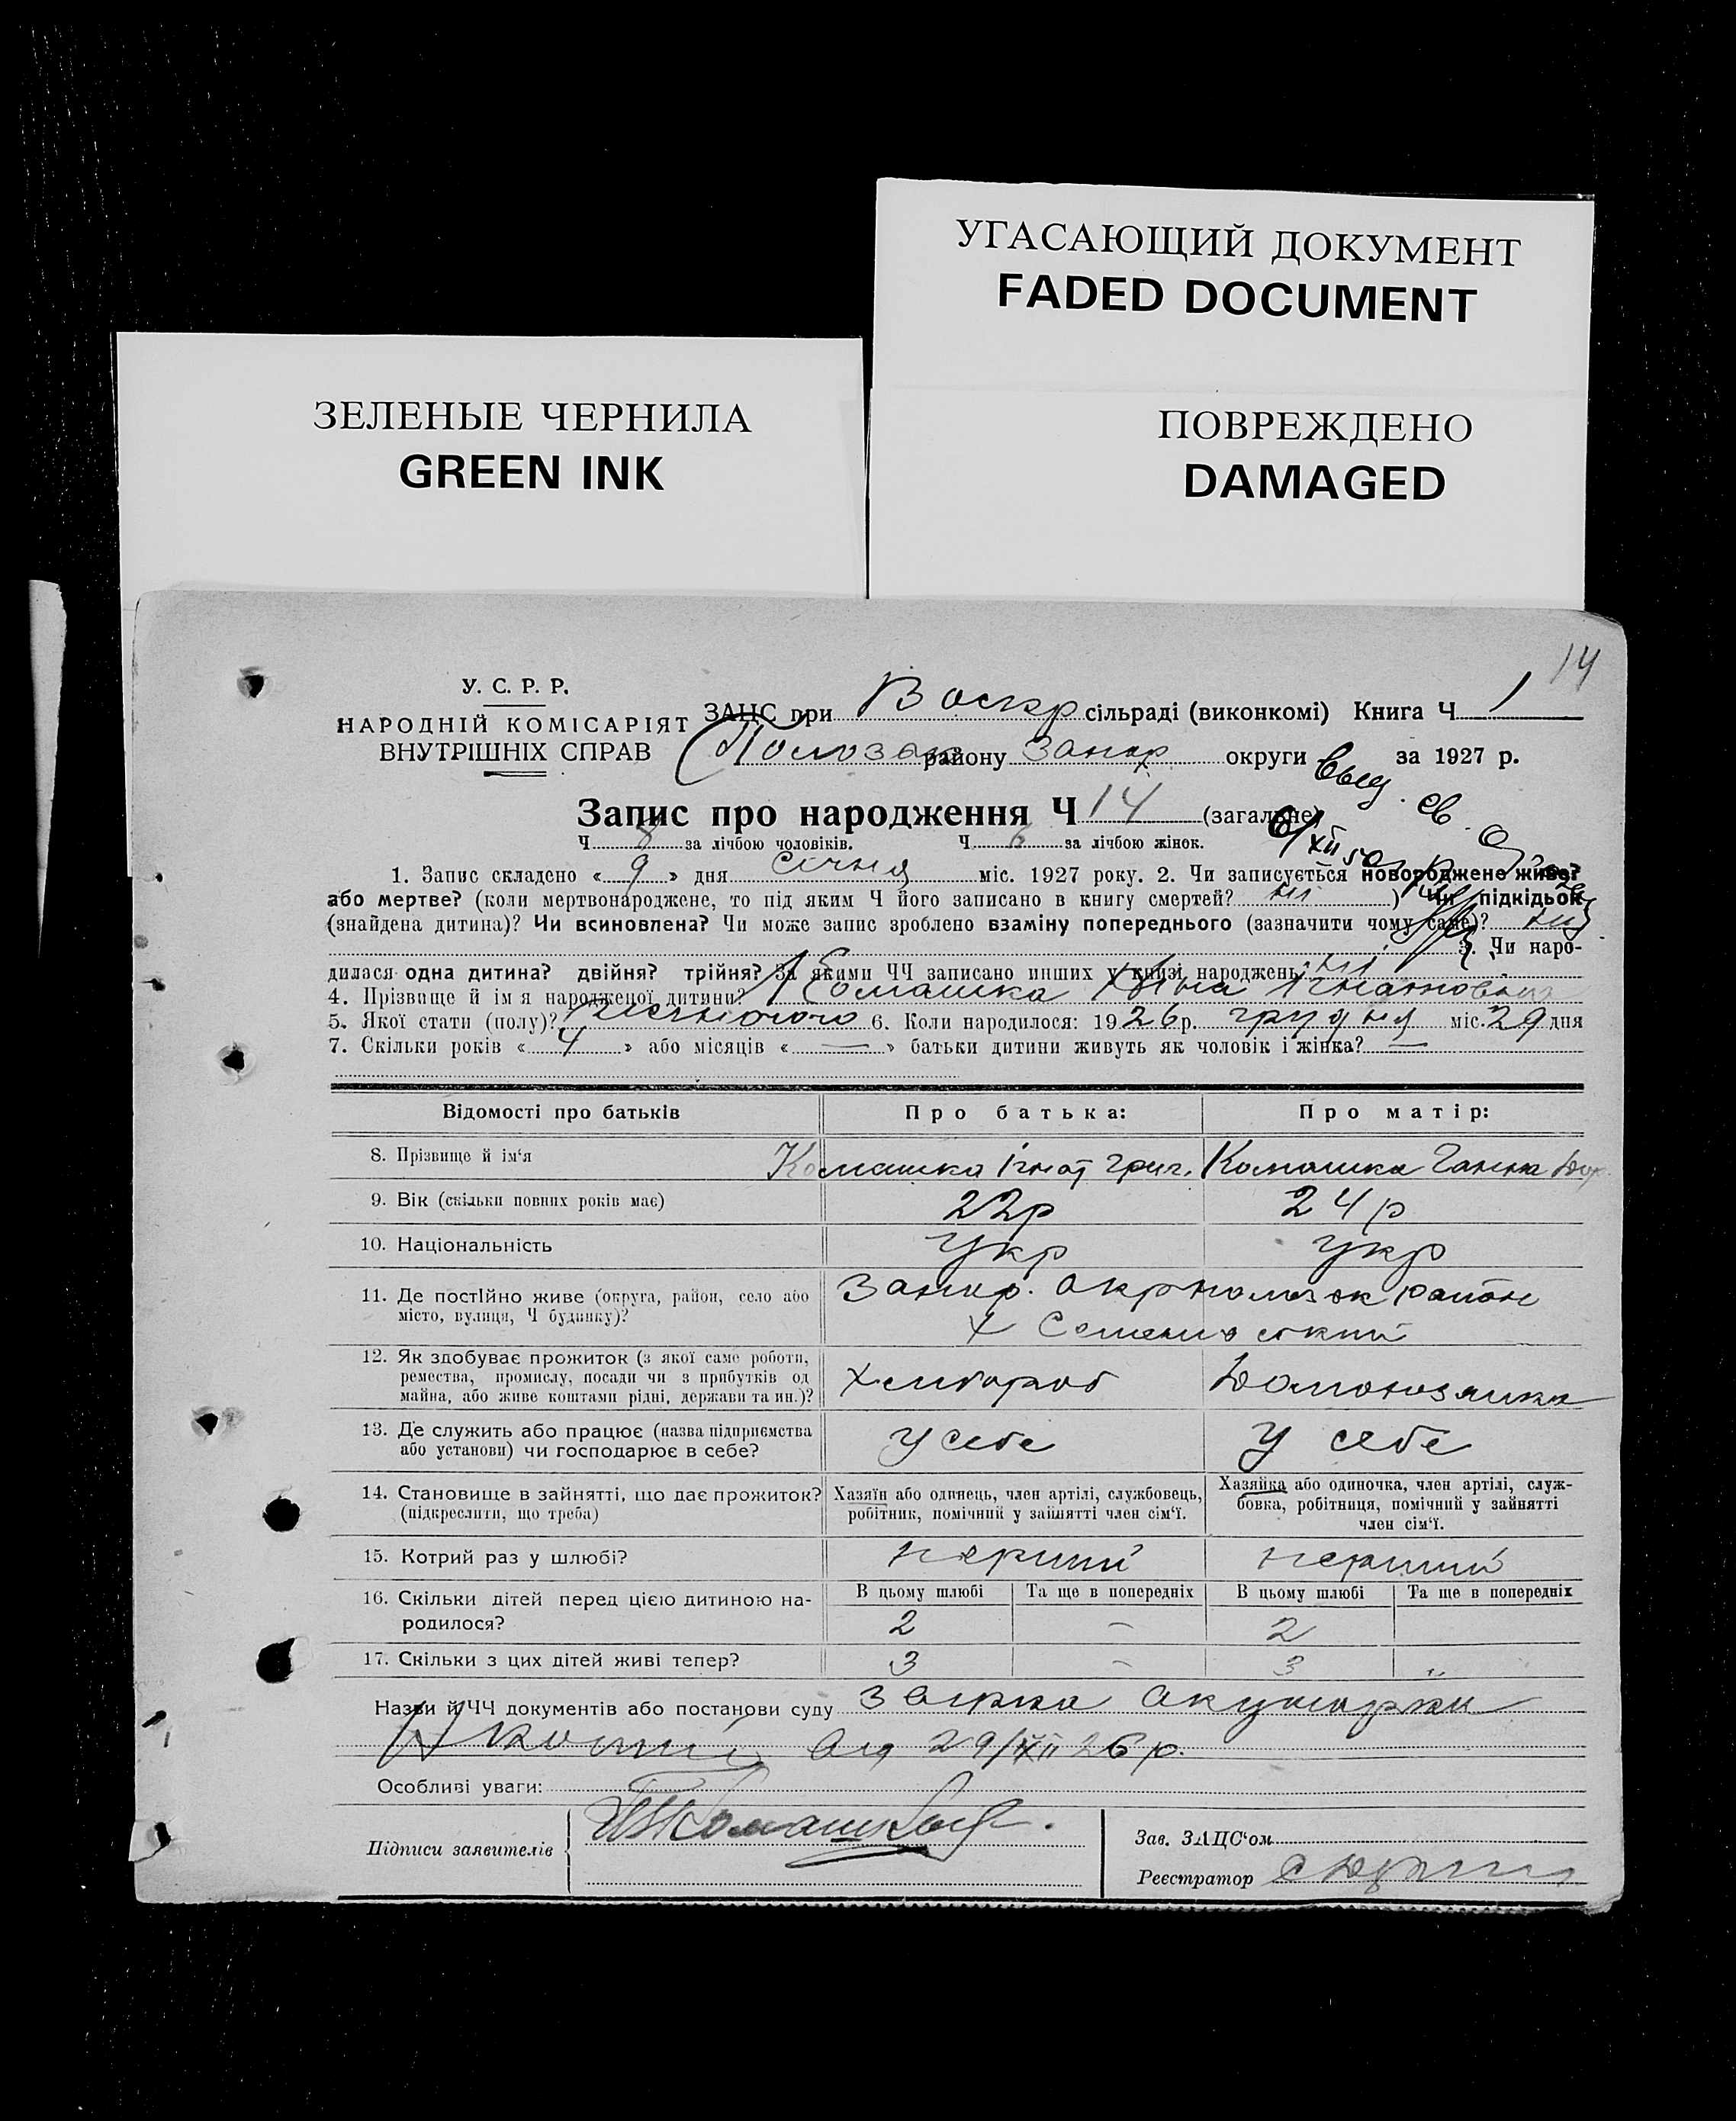 УГАСАЮЩИЙ ДОКУМЕНТ
FADED DOCUMENT
ЗЕЛЕНЫЕ ЧЕРНИЛА
GREEN INK
ПОВРЕЖДЕНО
DAMAGED
14
У. С. Р. Р.
НАРОДНІЙ КОМІСАРІЯТ
ВНУТРІШНІХ СПРАВ
ЗАЦС при Воскр сільраді (виконкомі) Книга Ч 1
району Запор округи за 1927 р.
Запис про народження Ч 14 (загальне)
Ч 8 за лічбою чоловіків. Ч 6 за лічбою жінок.
1. Запис складено « 9 » дня січня міс. 1927 року. 2. Чи записується новороджене живе?
або мертве? (коли мертвонароджене, то під яким Ч його записано в книгу смертей? ні ) Чи підкідьок
(знайдена дитина)? Чи всиновлена? Чи може запис зроблено взаміну попереднього (зазначити чому саме)? ні
3. Чи наро-
дилася одна дитина? двійня? трійня? За якими ЧЧ записано инших у книзі народжень? ні
4. Прізвище й ім я народженої дитини? Комашка Ігнатовна
5. Якої стати (полу)? жіночого 6. Коли народилося: 1926 р. грудня міс. 29 дня
7. Скільки років « 4 » або місяців « — » батьки дитини живуть як чоловік і жінка? —
Відомості про батьків Про батька: Про матір:
8. Прізвище й ім‘я Комашка Ігнат Григ. Комашка Ганна
9. Вік (скільки повних років має) 22р 24р
10. Національність Укр Укр
11. Де постІйно живе (округа, район, село або
місто, вулиця, Ч будинку)? Запор. окр полозьк район
х Семеновский
12. Як здобуває прожиток (з якої саме роботи,
ремества, промислу, посади чи з прибутків од
майна, або живе коштами рідні, держави та ин.)? Хлибороб Домохозяйка
13. Де служить або працює (назва підприємства
або установи) чи господарює в себе? У себе У себе
14. Становище в зайнятті, що дає прожиток?
(підкреслити, що треба)
Хазяїн або одинець, член артілі, службовець,
робітник, помічний у зайнятті член сім‘ї.
Хазяйка або одиночка, член артілі, служ-
бовка, робітниця, помічний у зайнятті
член сім‘ї.
15. Котрий раз у шлюбі? перший перший
16. Скільки дітей перед цією дитиною на-
родилося?
В цьому шлюбі Та ще в попередніх В цьому шлюбі Та ще в попередніх
2 – 2
17. Скільки з цих дітей живі тепер? 3 – 3 „
Назви й ЧЧ документів або постанови суду акушерки
29/XII 26 р.
Особливі уваги:
Підписи заявителів
Зав. ЗАЦС‘ом
Реєстратор